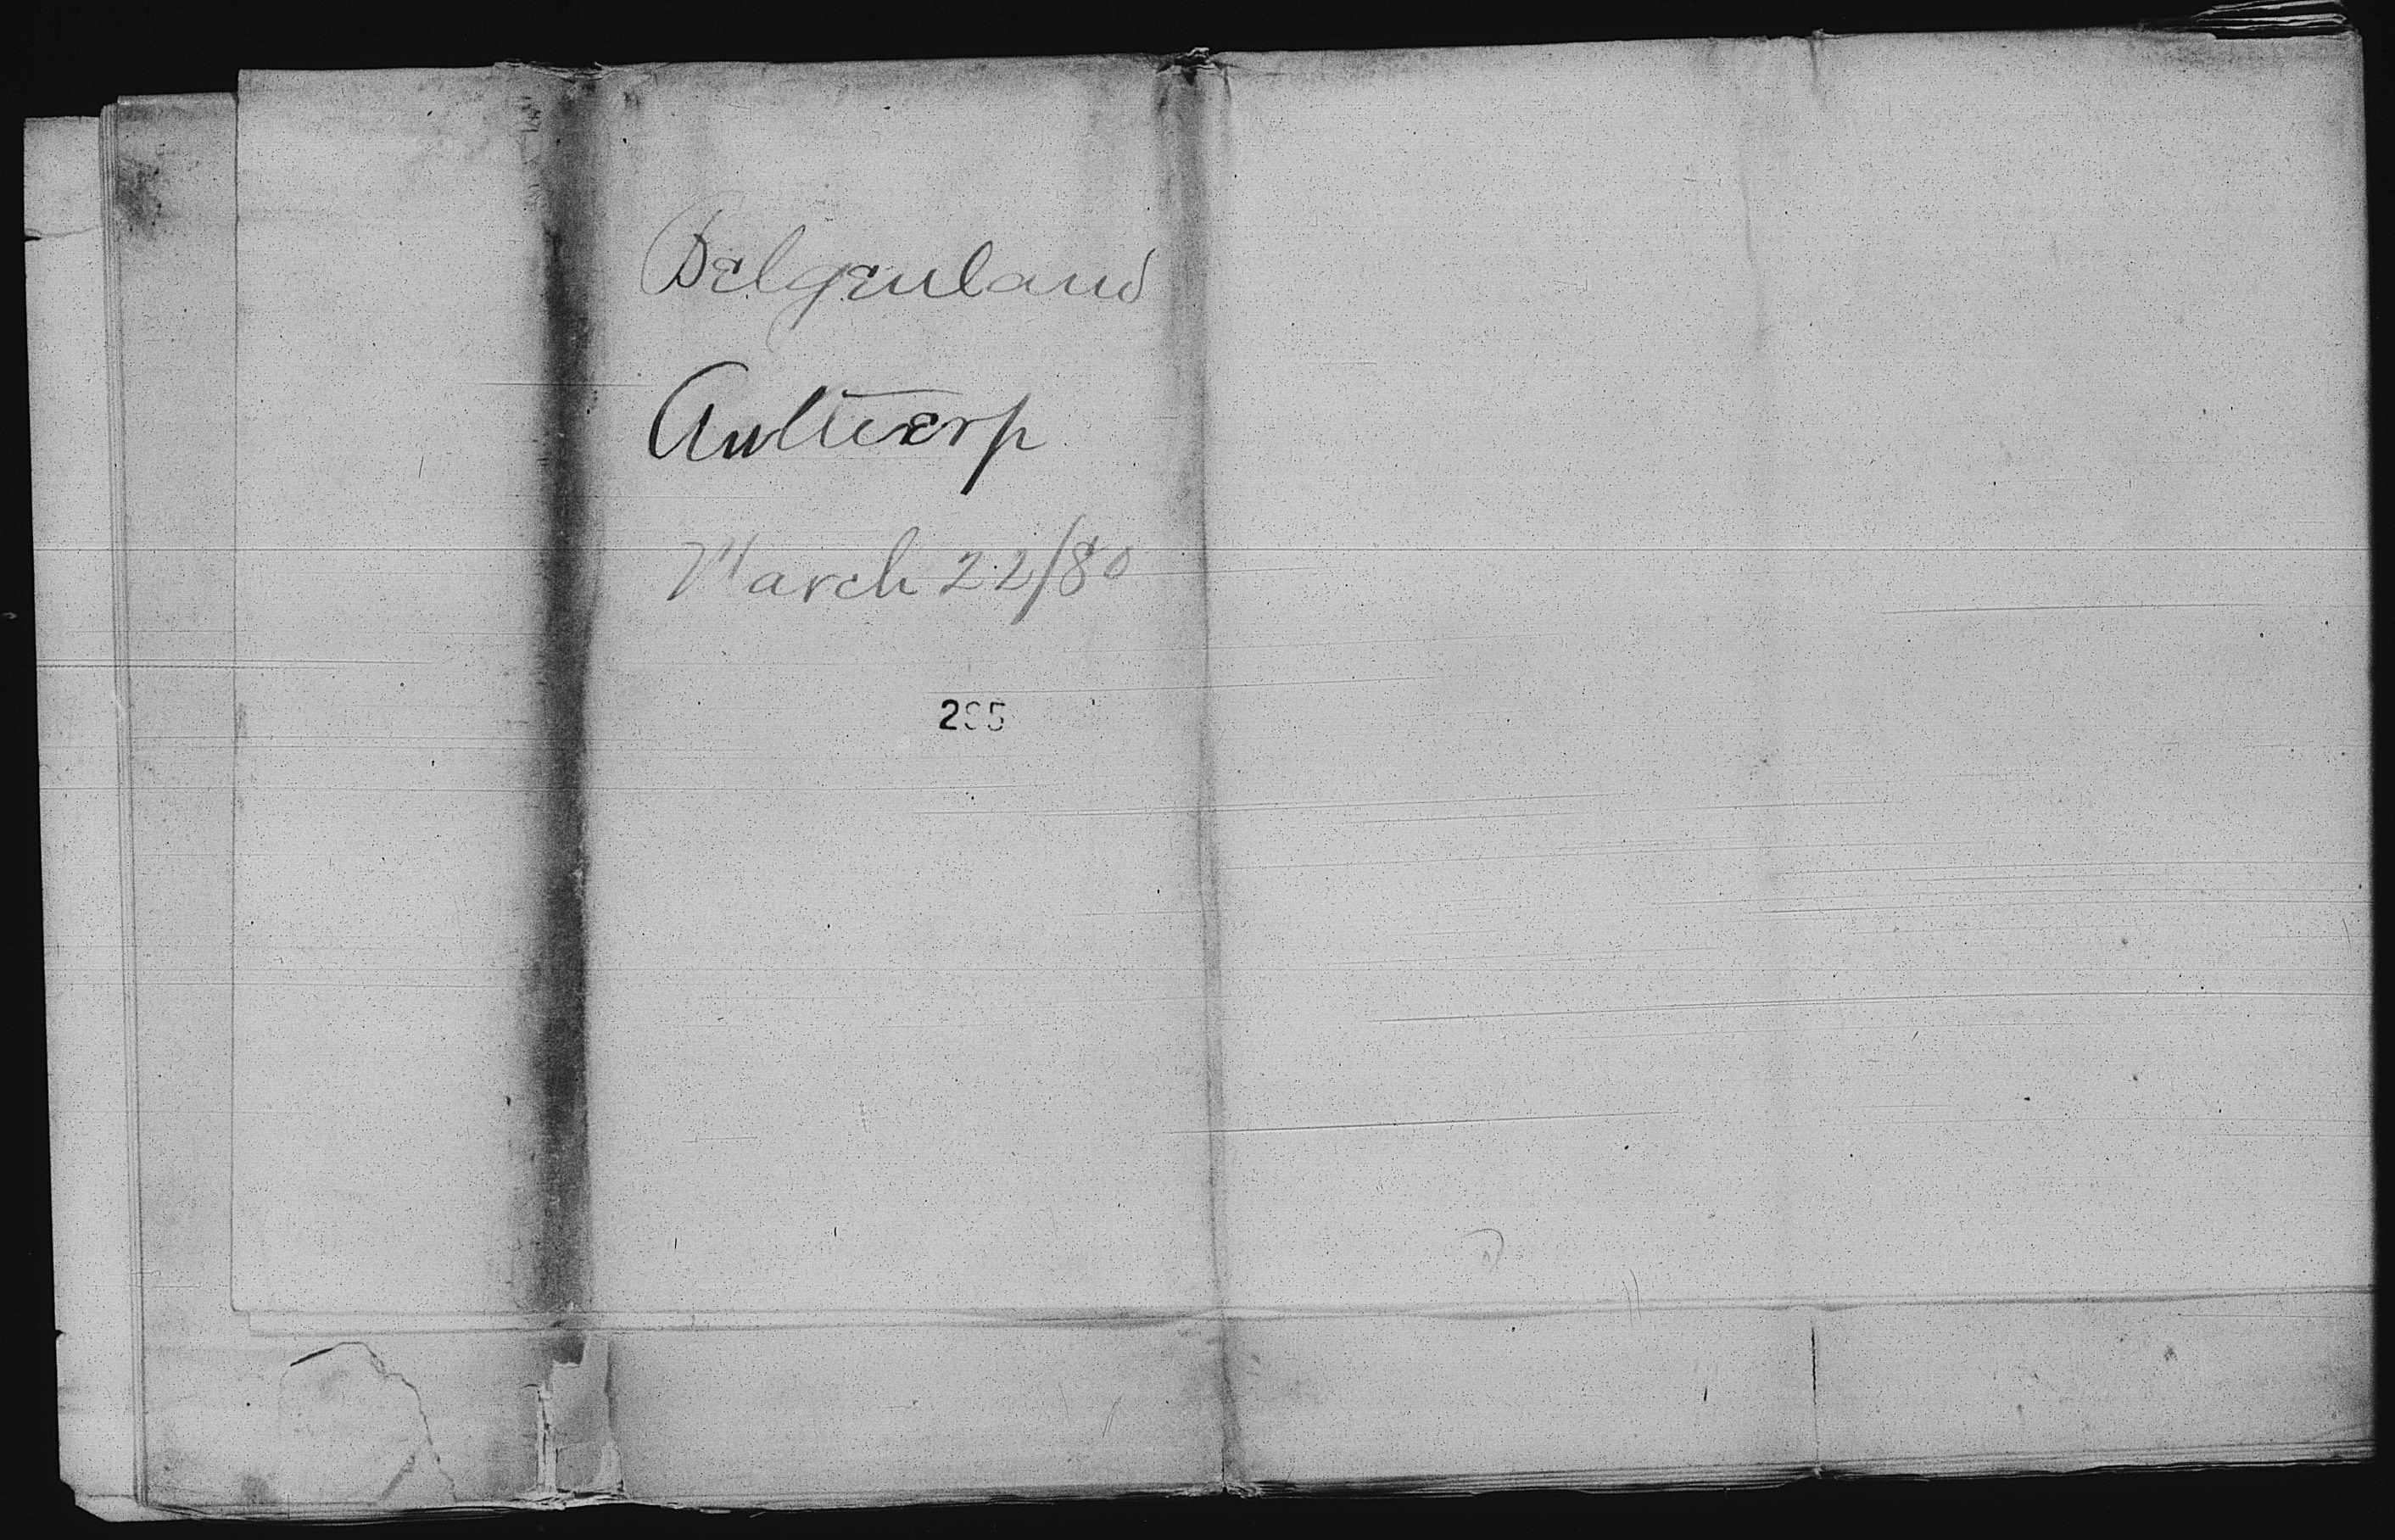 Belgenland
Antwerp
March 22/80
295